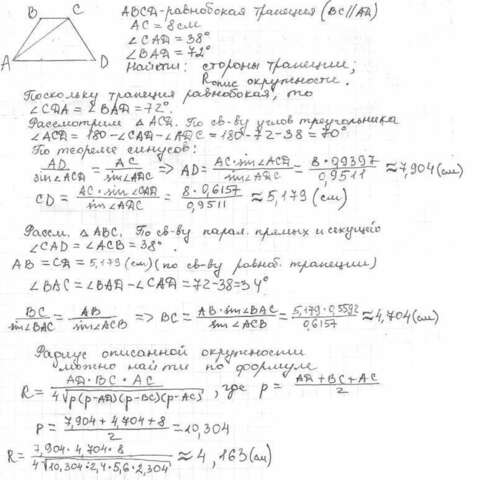 B C
A D
ABCD-равнобокая трапеция (BC//AD)
AC = 8см
∠CAD = 38°
∠BAD = 72°
Найти: стороны трапеции,
Rопис окружности.
Поскольку трапеция равнобокая, то
∠CDA = ∠BAD = 72°.
Рассмотрим △ ACD. По св-ву углов треугольника
∠ACD = 180 - ∠CAD - ∠ADC = 180 - 72 - 38 = 70°
По теореме синусов:
AD/sin∠ACD = AC/sin∠ADC => AD = AC·sin∠ACD/sin∠ADC = 8·0,9397/0,9511 ≈ 7,904 (см)
CD = AC·sin∠CAD/sin∠ADC = 8·0,6157/0,9511 ≈ 5,179 (см)
Рассм. △ ABC. По св-ву парал. прямых и секущей
∠CAD = ∠ACB = 38°.
AB = CD = 5,179 (см) (по св-ву равноб. трапеции)
∠BAC = ∠BAD - ∠CAD = 72-38=34°
BC/sin∠BAC = AB/sin∠ACB => BC = AB·sin∠BAC/sin∠ACB = 5,179·0,5592/0,6157 ≈ 4,704 (см)
Радиус описанной окружности
можно найти по формуле
R = AD·BC·AC/4√p(p-AD)(p-BC)(p-AC), где p = AD+BC+AC/2
P = 7,904+4,704+8/2 = 10,304
R = 7,904·4,704·8/4√10,304·2,4·5,6·2,304 ≈ 4,163 (см)